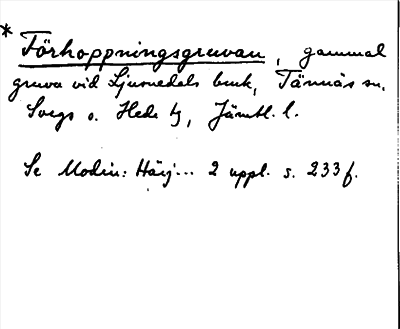 * Förhoppningsgruvan, gammal
gruva vid Ljusnedals bruk, Tännäs sn.
Svegs o. Hede tg, Jämtl. l.
Se Modin: Härj... 2 uppl. s. 233 f.